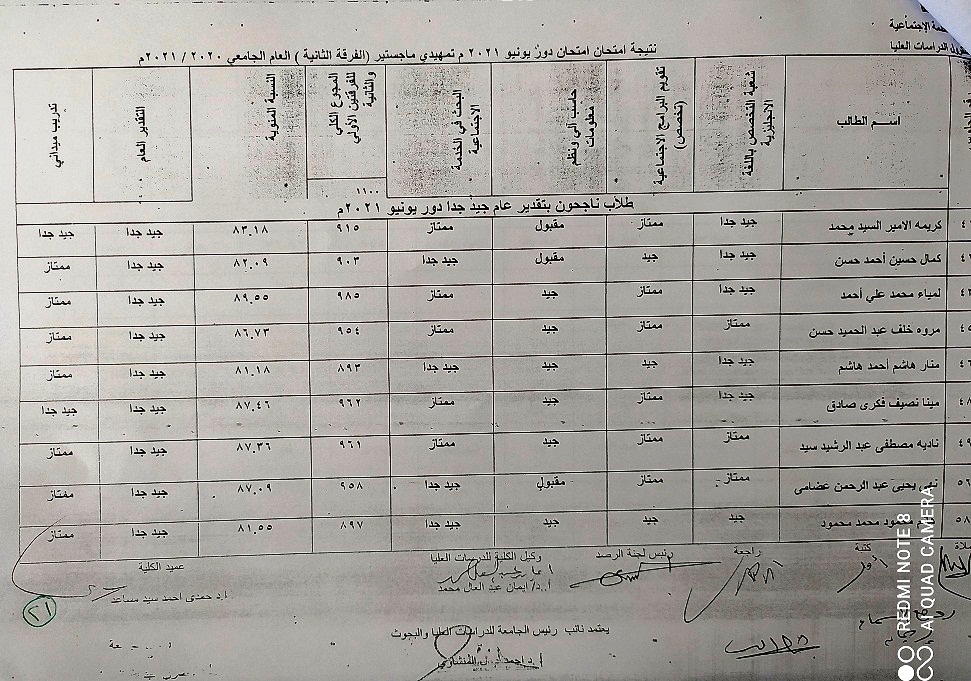 الدراسات العليا
نتيجة امتحان امتحان دور يونيو ٢٠٢١ م تمهيدي ماجستير (الفرقة الثانية ) العام الجامعي ٢٠٢٠ / ٢٠٢١م
اسم الطالب | شعبة التخصص باللغة الانجليزية | تقويم البرامج الاجتماعية (تخصص) | حاسب آلي ونظم معلومات | البحث في الخدمة الاجتماعية | المجموع الكلي للفرقتين الأولي والثانية | النسبة المئوية | التقدير العام | تدريب ميداني
١١٠٠
طلاب ناجحون بتقدير عام جيد جدا دور يونيو ٢٠٢١م
كريمه الامير السيد محمد | جيد جدا | ممتاز | مقبول | ممتاز | ٩١٥ | ٨٣.١٨ | جيد جدا | جيد جدا
كمال حسين أحمد حسن | جيد جدا | جيد | مقبول | جيد جدا | ٩٠٣ | ٨٢.٠٩ | جيد جدا | ممتاز
لمياء محمد علي أحمد | جيد جدا | ممتاز | جيد | ممتاز | ٩٨٥ | ٨٩.٥٥ | جيد جدا | ممتاز
مروه خلف عبد الحميد حسن | ممتاز | ممتاز | جيد | ممتاز | ٩٥٤ | ٨٦.٧٣ | جيد جدا | ممتاز
منار هاشم أحمد هاشم | جيد جدا | جيد | جيد | جيد جدا | ٨٩٣ | ٨١.١٨ | جيد جدا | ممتاز
مينا نصيف فكرى صادق | جيد جدا | ممتاز | جيد | ممتاز | ٩٦٢ | ٨٧.٤٦ | جيد جدا | جيد جدا
ناديه مصطفى عبد الرشيد سيد | ممتاز | ممتاز | جيد | ممتاز | ٩٦١ | ٨٧.٣٦ | جيد جدا | ممتاز
٥٦ | نهى يحيى عبد الرحمن عضامى | ممتاز | ممتاز | مقبول | جيد جدا | ٩٥٨ | ٨٧.٠٩ | جيد جدا | ممتاز
٥٨ | محمود محمد محمود | جيد | جيد | جيد | جيد جدا | ٨٩٧ | ٨١.٥٥ | جيد جدا | ممتاز
كتبة | راجعة | رئيس لجنة الرصد | وكيل الكلية للدراسات العليا | عميد الكلية
أ.د/ ايمان عبد العال محمد
ا.د حمدى احمد سيد مساعد
٢١
يعتمد نائب رئيس الجامعة للدراسات العليا والبحوث
REDMI NOTE 8
AI QUAD CAMERA